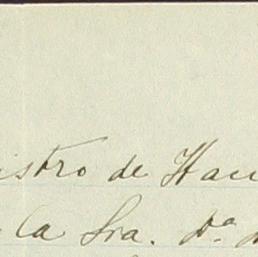 istro de Hac
la Sra. Dª